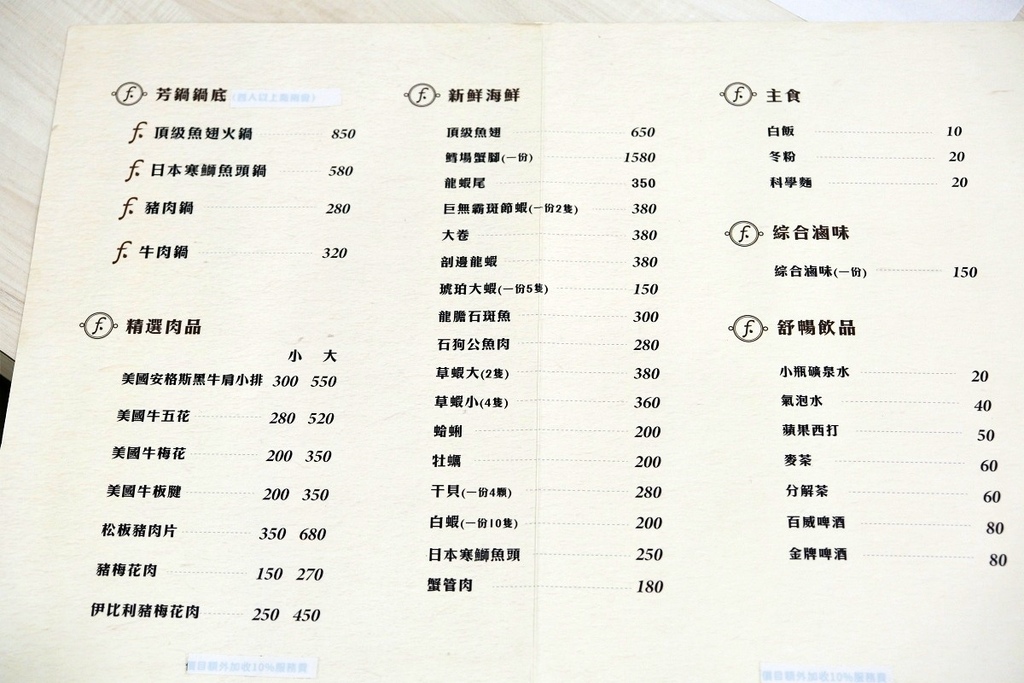 芳鍋鍋底
f. 頂級魚翅火鍋 850
f. 日本寒鰤魚頭鍋 580
f. 豬肉鍋 280
f. 牛肉鍋 320
f. 精選肉品
小 大
美國安格斯黑牛肩小排 300 550
美國牛五花 280 520
美國牛梅花 200 350
美國牛板腱 200 350
松板豬肉片 350 680
豬梅花肉 150 270
伊比利豬梅花肉 250 450
額外加收10%服務費
f. 新鮮海鮮
頂級魚翅 650
鱈場蟹腳(一份) 1580
龍蝦尾 350
巨無霸斑節蝦(一份2隻) 380
大卷 380
剖邊龍蝦 380
琥珀大蝦(一份5隻) 150
龍膽石斑魚 300
石狗公魚肉 280
草蝦大(2隻) 380
草蝦小(4隻) 360
蛤蜊 200
牡蠣 200
干貝(一份4顆) 280
白蝦(一份10隻) 200
日本寒鰤魚頭 250
蟹管肉 180
f. 主食
白飯 10
冬粉 20
科學麵 20
f. 綜合滷味
綜合滷味(一份) 150
f. 舒暢飲品
小瓶礦泉水 20
氣泡水 40
蘋果西打 50
麥茶 60
分解茶 60
百威啤酒 80
金牌啤酒 80
額外加收10%服務費